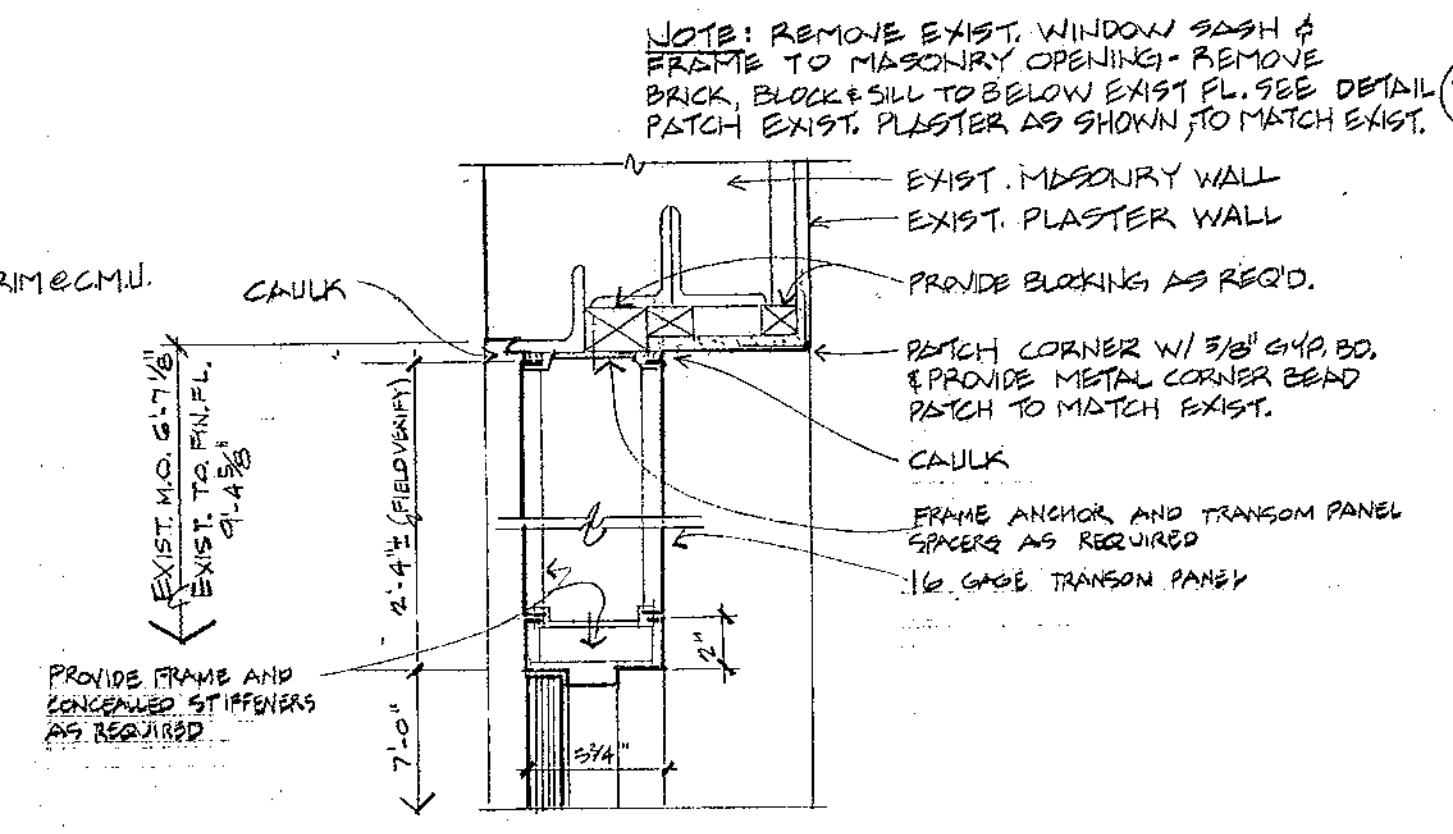 NOTE: REMOVE EXIST. WINDOW SASH &
FRAME TO MASONRY OPENING - REMOVE
BRICK, BLOCK & SILL TO BELOW EXIST FL. SEE DETAIL
PATCH EXIST. PLASTER AS SHOWN, TO MATCH EXIST.
EXIST. MASONRY WALL
EXIST. PLASTER WALL
RIM @ C.M.U.
CAULK
PROVIDE BLOCKING AS REQ'D.
PATCH CORNER W/ 5/8" GYP. BD.
& PROVIDE METAL CORNER BEAD
PATCH TO MATCH EXIST.
CAULK
FRAME ANCHOR AND TRANSOM PANEL
SPACERS AS REQUIRED
16 GAGE TRANSOM PANEL
EXIST. M.O. 6'-7 1/8"
EXIST. TO FIN. FL.
9'-4 5/8"
2'-4"± (FIELD VERIFY)
2"
PROVIDE FRAME AND
CONCEALED STIFFENERS
AS REQUIRED
7'-0"
5 3/4"